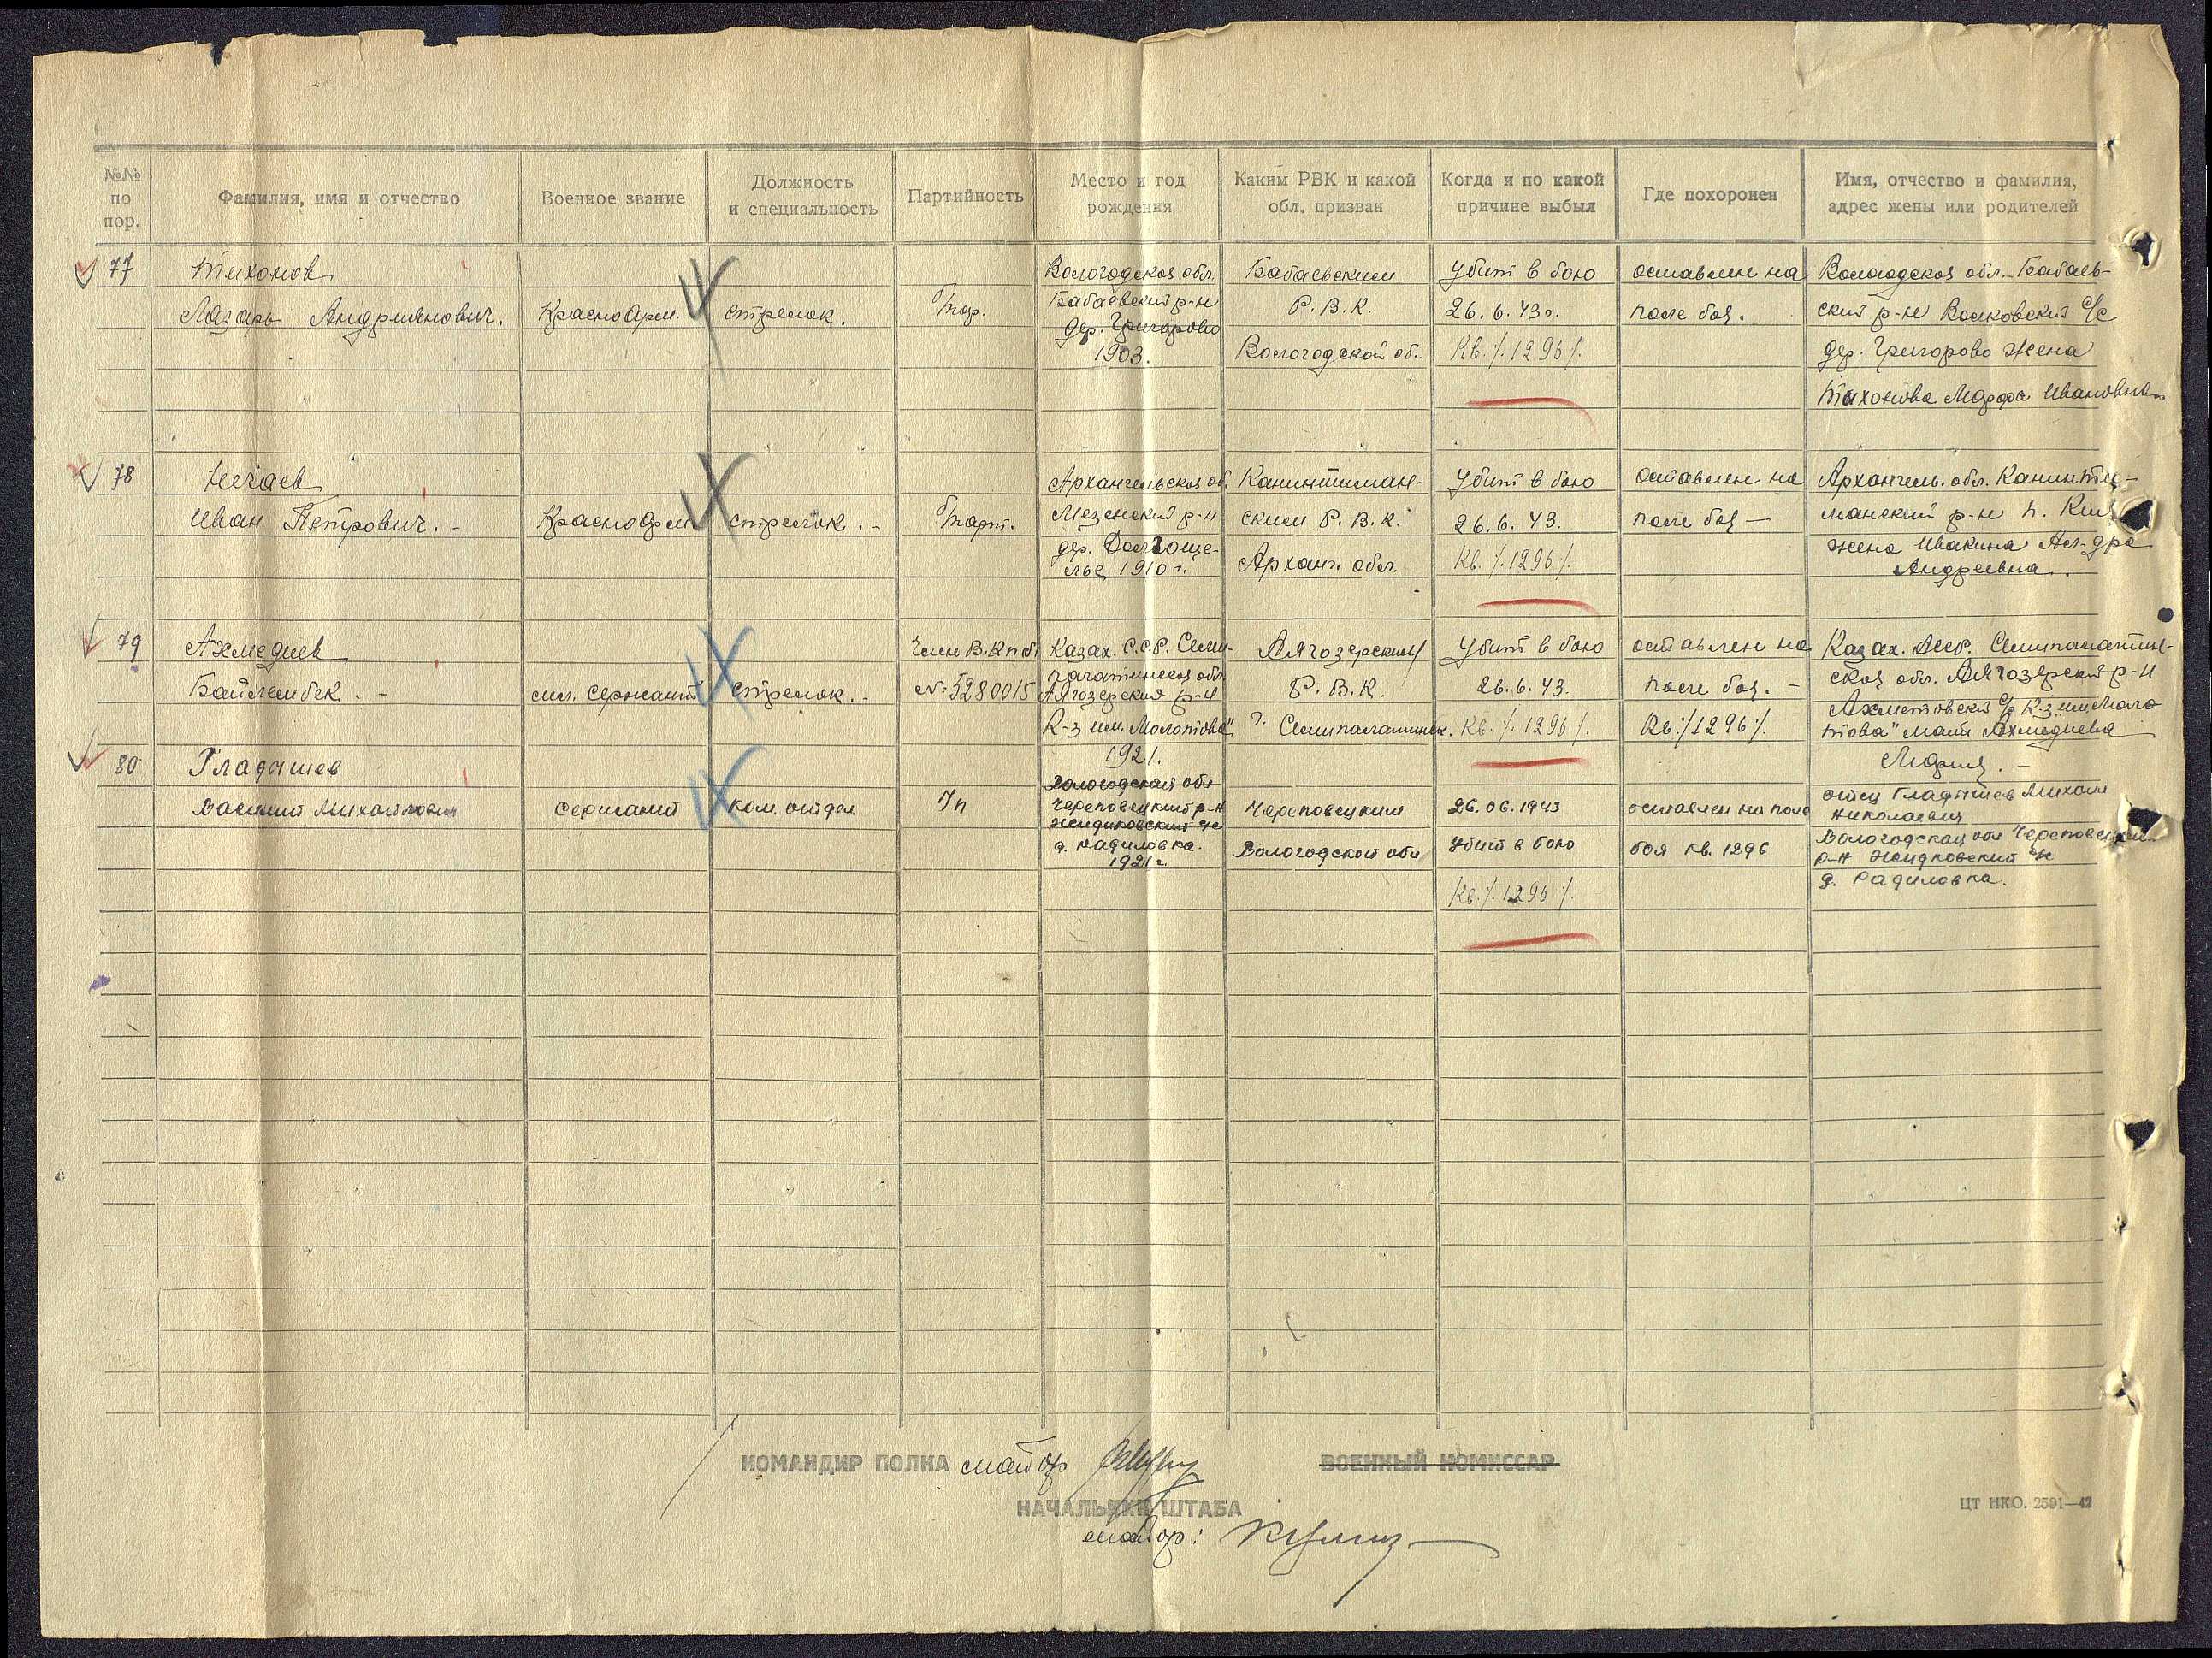 №№ по пор.
Фамилия, имя и отчество
Военное звание
Должность и специальность
Партийность
Место и год рождения
Каким РВК и какой обл. призван
Когда и по какой причине выбыл
Где похоронен
Имя, отчество и фамилия, адрес жены или родителей
77
Тихонов
Лазарь Андриянович.
Красноарм.
стрелок.
Вологодская обл.
Бабаевский р-н
дер. Григорово
1903.
Бабаевским
Р.В.К.
Вологодской об.
Убит в бою
26.6.43г.
Кв. ./. 1296 ./.
оставлен на
поле боя.
Вологодская обл. Бабаев-
ский р-н Волковский с/с
дер. Григорово жена
Тихонова Марфа Ивановна
78
Нечаев
Иван Петрович. -
Красноарм
стрелок. -
Архангельская об.
Мезенский р-н
дер. Долгоще-
лье 1910г.
Канинтиман-
ским Р.В.К.
Арханг. обл.
Убит в бою
26.6.43.
Кв. ./. 1296 ./.
оставлен на
поле боя —
Архангель. обл. Канинти-
манский р-н п.
жена Ивакина Ал-дра
Андреевна.
79
Ахмедиев
Байлембек. -
мл. сержант
стрелок. -
Член В.К.п.б
№ 5280015
Казах. С.С.Р. Семи-
палатинская обл
Аягозерский р-н
К-з им. Молотова"
1921.
Аягозерским
Р.В.К.
г. Семипалатинск.
Убит в бою
26.6.43.
Кв. ./. 1296 ./.
оставлен на
поле боя. -
Кв ./. 1296 ./.
Казах. Асср. Семипалатин-
ская обл. Аягозерский р-н
Ахметовский с/с К-з им Моло
това" мать Ахмедиева
Мария. -
80
Гладышев
Василий Михайлович
сержант
ком. отдел
Вологодская обл
Череповецкий р-н
Жидиковский с/с
д. Радиловка.
1921г.
Череповецким
Вологодской обл
26.06.1943
убит в бою
Кв. ./. 1296 ./.
оставлен на поле
боя кв. 1296
отец Гладышев Михаил
Николаевич
Вологодская обл Череповецкий
р-н Жидковский с/с
д. Радиловка.
КОМАНДИР ПОЛКА майор
ВОЕННЫЙ КОМИССАР
НАЧАЛЬНИК ШТАБА
майор:
ЦТ НКО. 2591—42